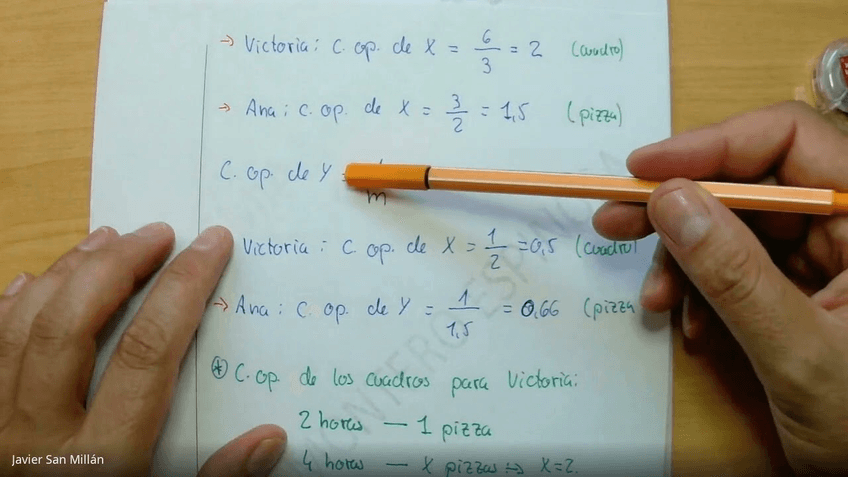 → Victoria: C. op. de X = 6/3 = 2 (cuadro)
→ Ana: C. op. de X = 3/2 = 1,5 (pizza)
C. op. de Y = m
Victoria: C. op. de X = 1/2 = 0,5 (cuadro)
→ Ana: C. op. de Y = 1/1,5 = 0,66 (pizza
* C. op. de los cuadros para Victoria:
2 horas — 1 pizza
4 horas — X pizzas ⇔ X=2.
Javier San Millán